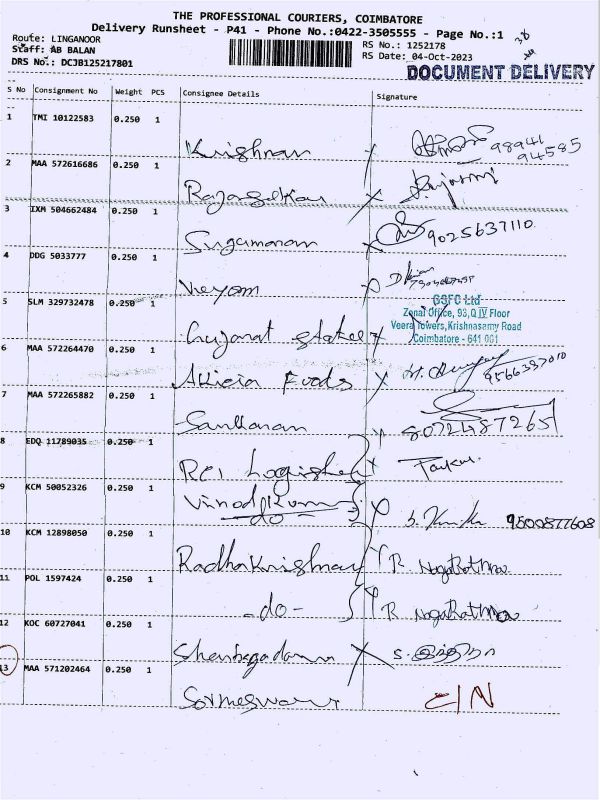 THE PROFESSIONAL COURIERS, COIMBATORE
Delivery Runsheet - P41 - Phone No.:0422-3505555 - Page No.:1
Route: LINGANOOR
RS No.: 1252178
Staff: AB BALAN
RS Date: 04-Oct-2023
DRS No.: DCJB125217801
DOCUMENT DELIVERY
S No Consignment No Weight PCS Consignee Details Signature
1 TMI 10122583 0.250 1
Krishnan 98941
94585
2 MAA 572616686 0.250 1
3 IXM 504662484 0.250 1
Sugumaran 9025637110
4 DDG 5033777 0.250 1
5 SLM 329732478 0.250 1
GSFC Ltd
Zonal Office, 93,Q IV Floor
Veera Towers,Krishnasamy Road
Coimbatore - 641 001
Gujarat State
6 MAA 572264470 0.250 1
Foods 9566337010
7 MAA 572265882 0.250 1
Sankaran 8072487265
8 EDQ 11789035 0.250 1
RCI
9 KCM 50052326 0.250 1
Vinod Kumar
-do- 9500877608
10 KCM 12898050 0.250 1
Radha Krishnan R NagaRathna
11 POL 1597424 0.250 1
-do- R NagaRathna
12 KOC 60727041 0.250 1
S.
13 MAA 571202464 0.250 1
C/N